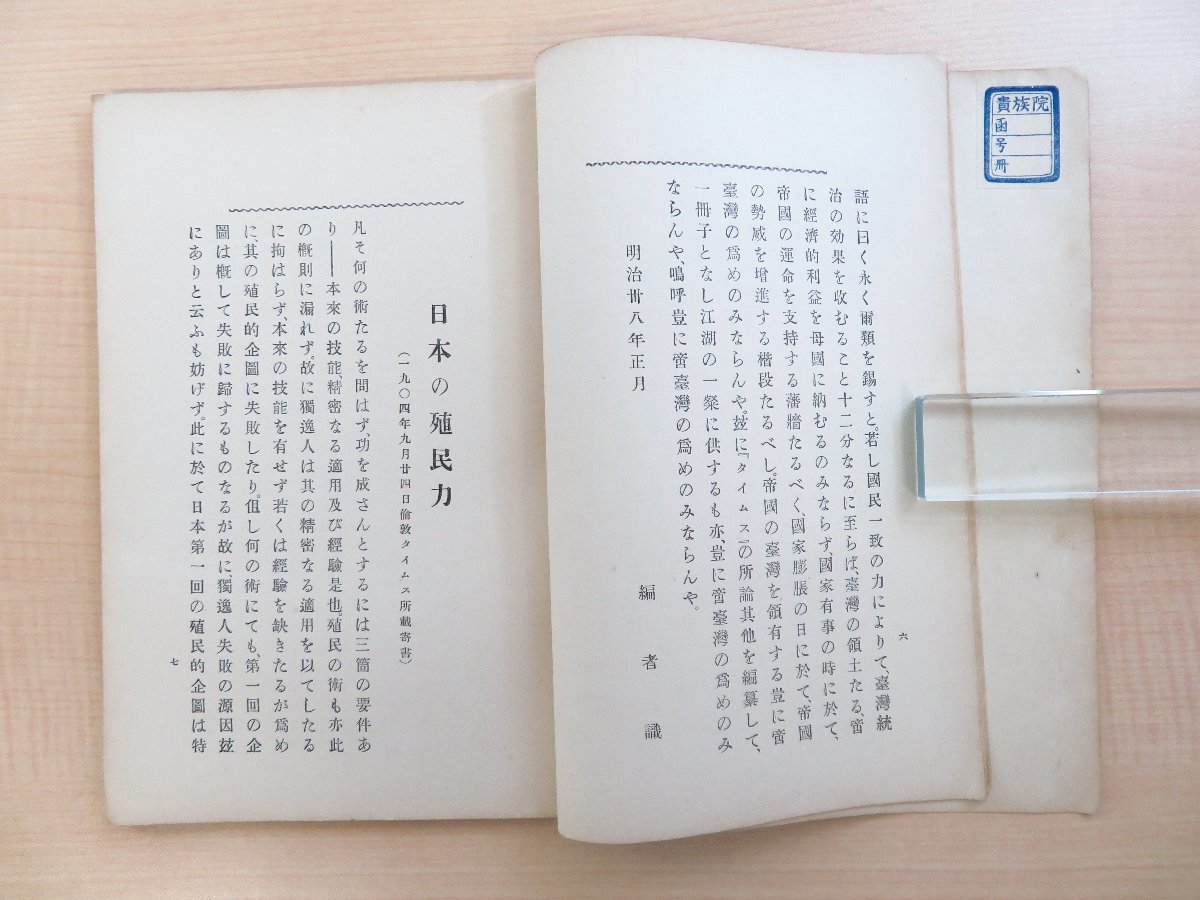 貴族院
函
号
冊
語に曰く永く爾類を錫すと。若し國民一致の力によりて、臺灣統
治の効果を收むること十二分なるに至らば、臺灣の領土たる、啻
に經濟的利益を母國に納むるのみならず、國家有事の時に於て、
帝國の運命を支持する藩牆たるべく、國家膨脹の日に於て、帝國
の勢威を增進する楷段たるべし。帝國の臺灣を領有する豈に啻
臺灣の爲めのみならんや。玆に「タイムス」の所論其他を編纂して、
一冊子となし江湖の一粲に供するも亦、豈に啻臺灣の爲めのみ
ならんや、嗚呼豈に啻臺灣の爲めのみならんや。
明治卅八年正月
編者識
六
日本の殖民力
(一九〇四年九月廿四日倫敦タイムス所載寄書)
凡そ何の術たるを問はず、功を成さんとするには三箇の要件あ
り――本來の技能、精密なる適用及び經驗是也。殖民の術も亦此
の槪則に漏れず。故に獨逸人は其の精密なる適用を以てしたる
に拘はらず、本來の技能を有せず若くは經驗を缺きたるが爲め
に、其の殖民的企圖に失敗したり。但し何の術にても、第一回の企
圖は槪して失敗に歸するものなるが故に、獨逸人失敗の源因玆
にありと云ふも妨げず。此に於て日本第一回の殖民的企圖は特
七